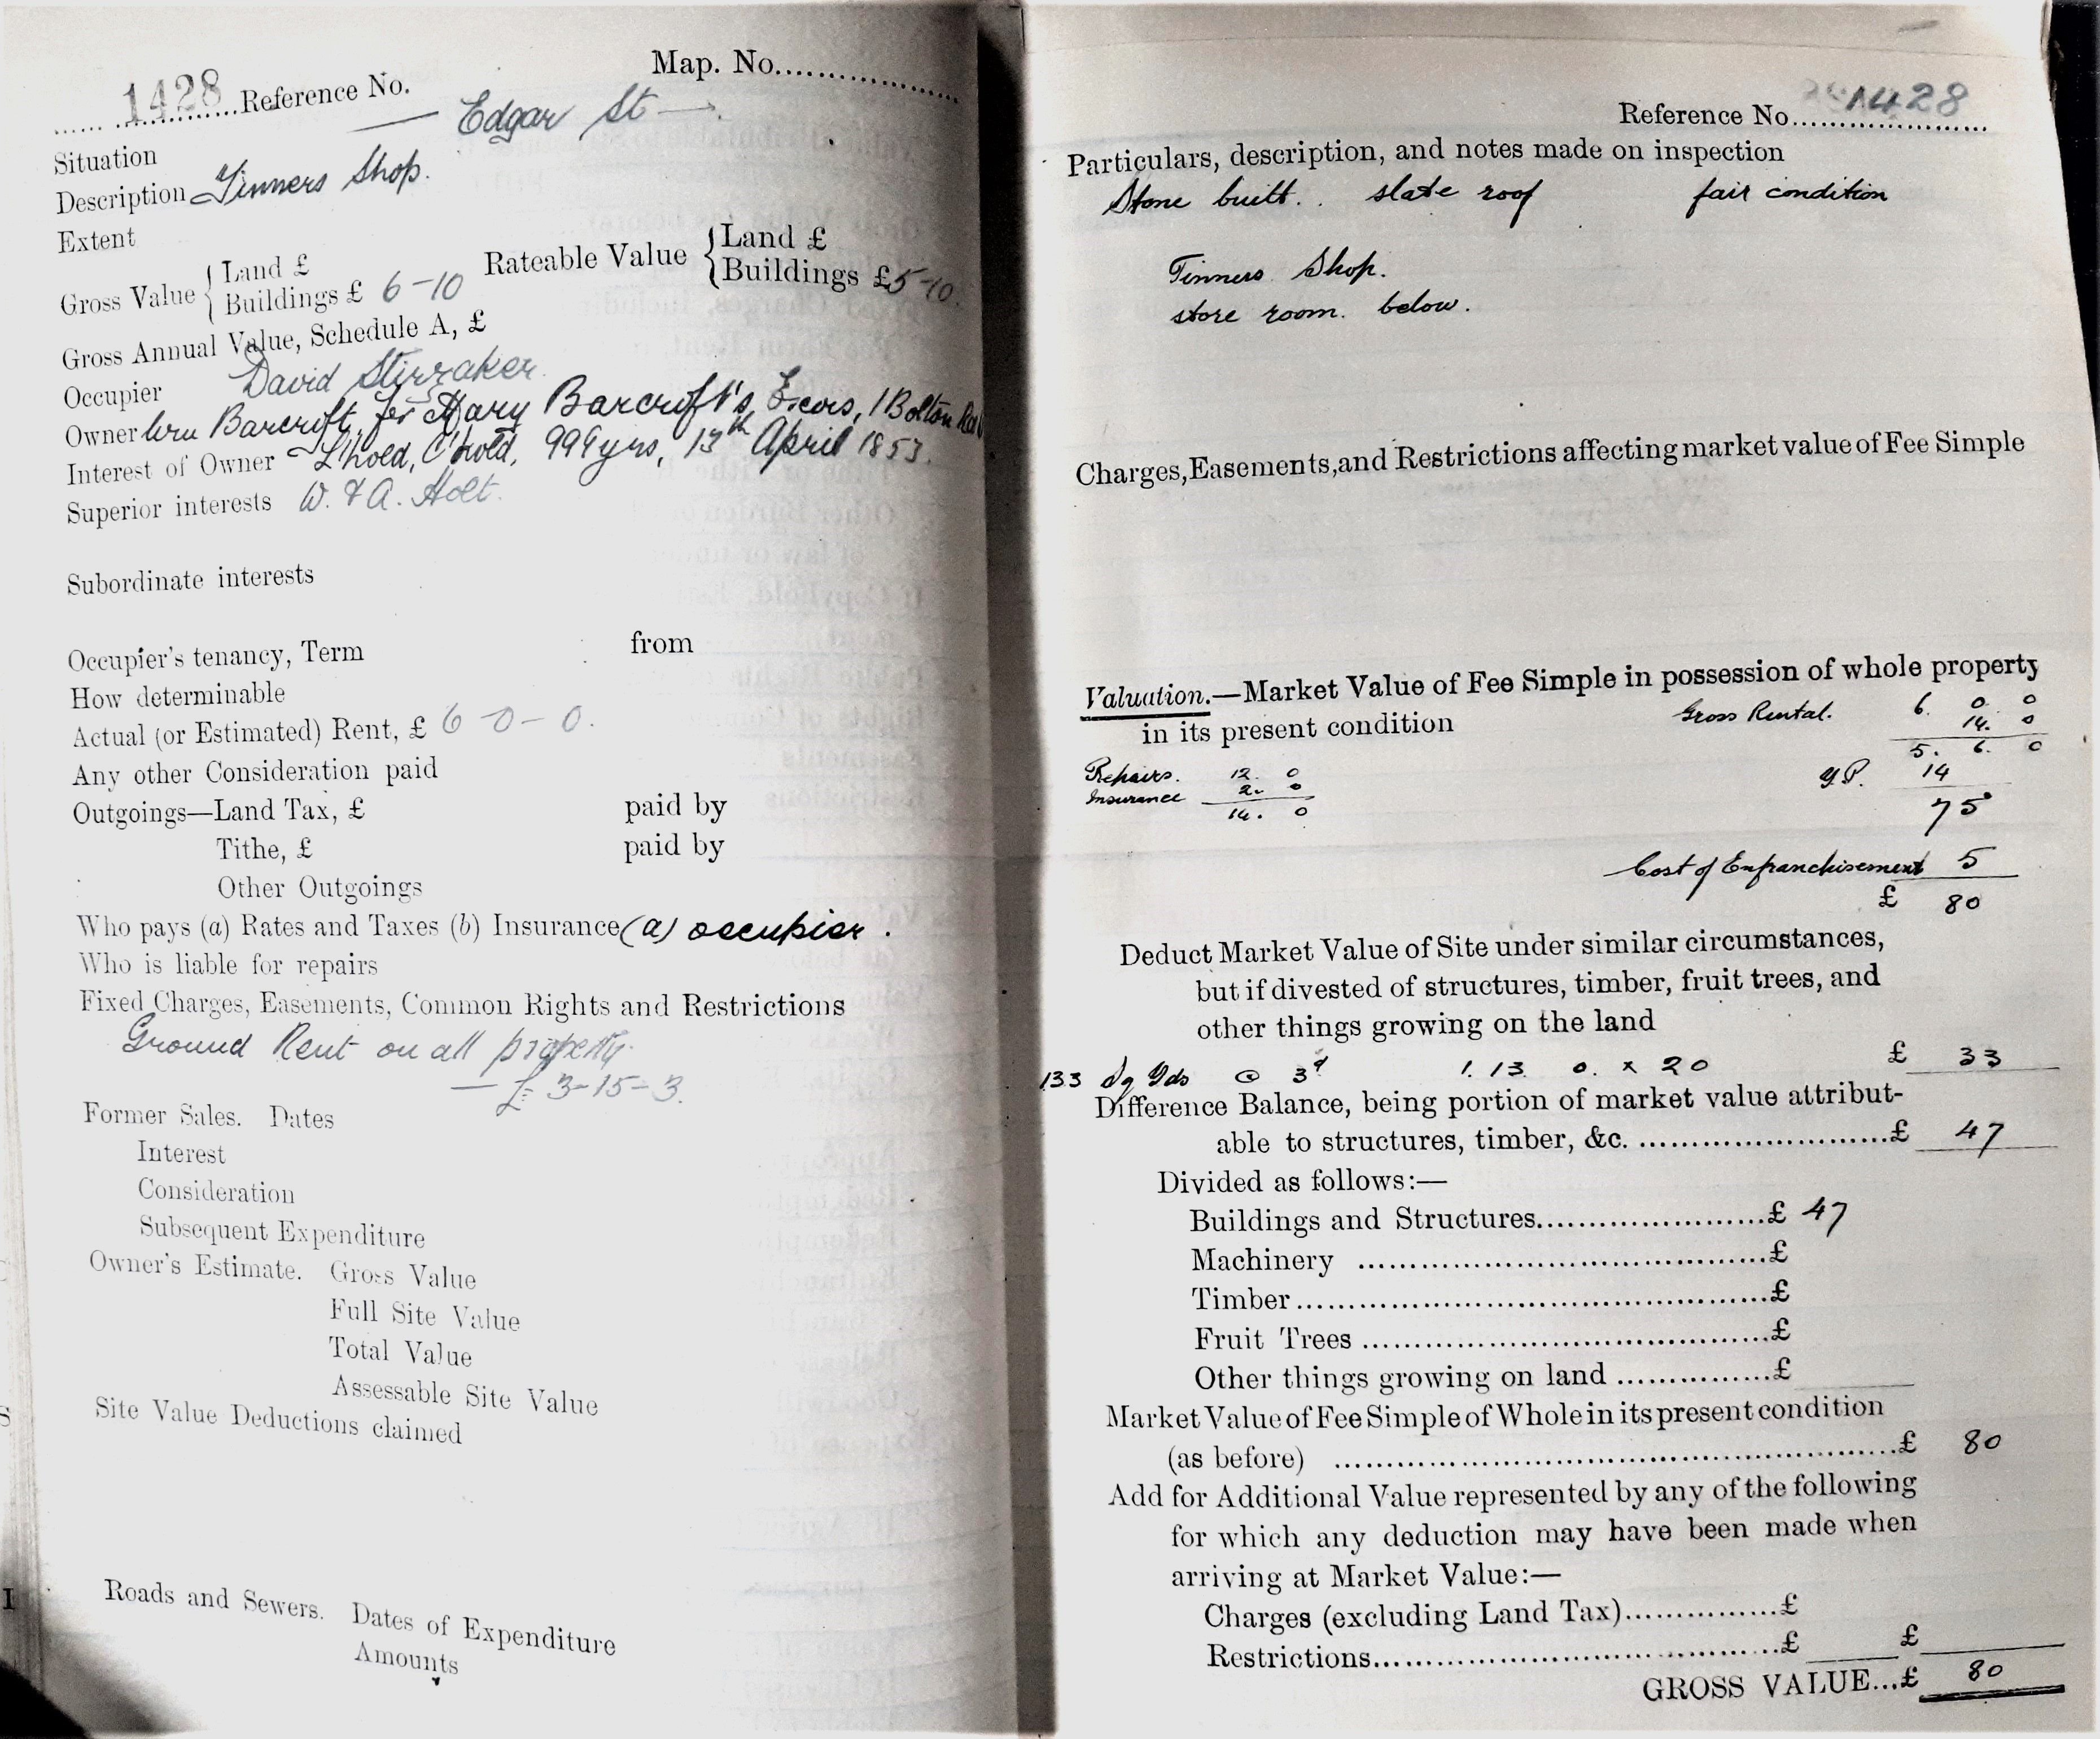 Map. No..................
1428 Reference No.
Situation — Edgar St —
Description Tinners Shop.
Extent
Gross Value { Land £
Buildings £ 6-10
Rateable Value { Land £
Buildings £5-10.
Gross Annual Value, Schedule A, £
Occupier David Stirzaker
Owner Barcroft, for Mary Barcroft's Exors, 1 Bolton Rd
Interest of Owner L'hold, C'hold, 999 yrs, 13th April 1853.
Superior interests W. & A. Holt.
Subordinate interests
Occupier's tenancy, Term from
How determinable
Actual (or Estimated) Rent, £ 6-0-0.
Any other Consideration paid
Outgoings—Land Tax, £ paid by
Tithe, £ paid by
Other Outgoings
Who pays (a) Rates and Taxes (b) Insurance (a) occupier.
Who is liable for repairs
Fixed Charges, Easements, Common Rights and Restrictions
Ground Rent on all property.
— £3-15-3.
Former Sales. Dates
Interest
Consideration
Subsequent Expenditure
Owner's Estimate. Gross Value
Full Site Value
Total Value
Assessable Site Value
Site Value Deductions claimed
Roads and Sewers. Dates of Expenditure
Amounts
Reference No. 1428
Particulars, description, and notes made on inspection
Stone built. slate roof fair condition
Tinners Shop.
store room. below.
Charges, Easements, and Restrictions affecting market value of Fee Simple
Valuation.—Market Value of Fee Simple in possession of whole property
in its present condition Gross Rental. 6. 0. 0
14. 0
5. 6. 0
Repairs. 12. 0 Y.P. 14
Insurance 2. 0
14. 0 75
Cost of Enfranchisement 5
£ 80
Deduct Market Value of Site under similar circumstances,
but if divested of structures, timber, fruit trees, and
other things growing on the land
133 Sq Yds @ 3d 1. 13. 0. x 20 £ 33
Difference Balance, being portion of market value attribut-
able to structures, timber, &c. ........................£ 47
Divided as follows:—
Buildings and Structures......................£ 47
Machinery ......................................£
Timber............................................£
Fruit Trees .....................................£
Other things growing on land ...............£
Market Value of Fee Simple of Whole in its present condition
(as before) ......................................................£ 80
Add for Additional Value represented by any of the following
for which any deduction may have been made when
arriving at Market Value:—
Charges (excluding Land Tax)...............£
Restrictions......................................£ £
GROSS VALUE...£ 80